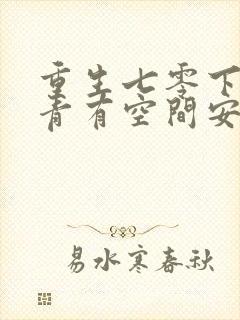 重生七零下
青有空間安
易水寒春秋